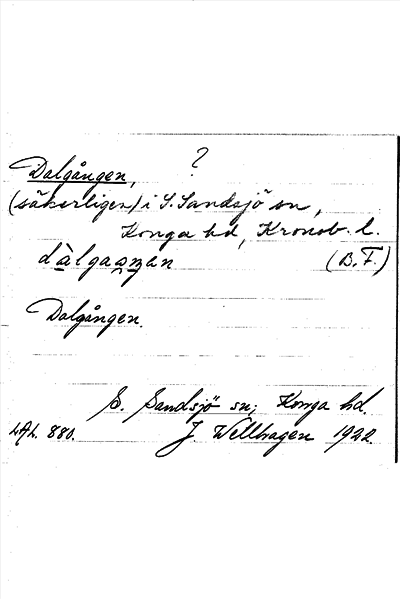 ?
Dalgången,
(säkerligen) i S. Sandsjö sn,
Konga hd, Kronob. l.
(B. F.)
Dalgången.
S. Sandsjö sn; Konga hd.
LAL. 880. J. Wellhagen 1922.